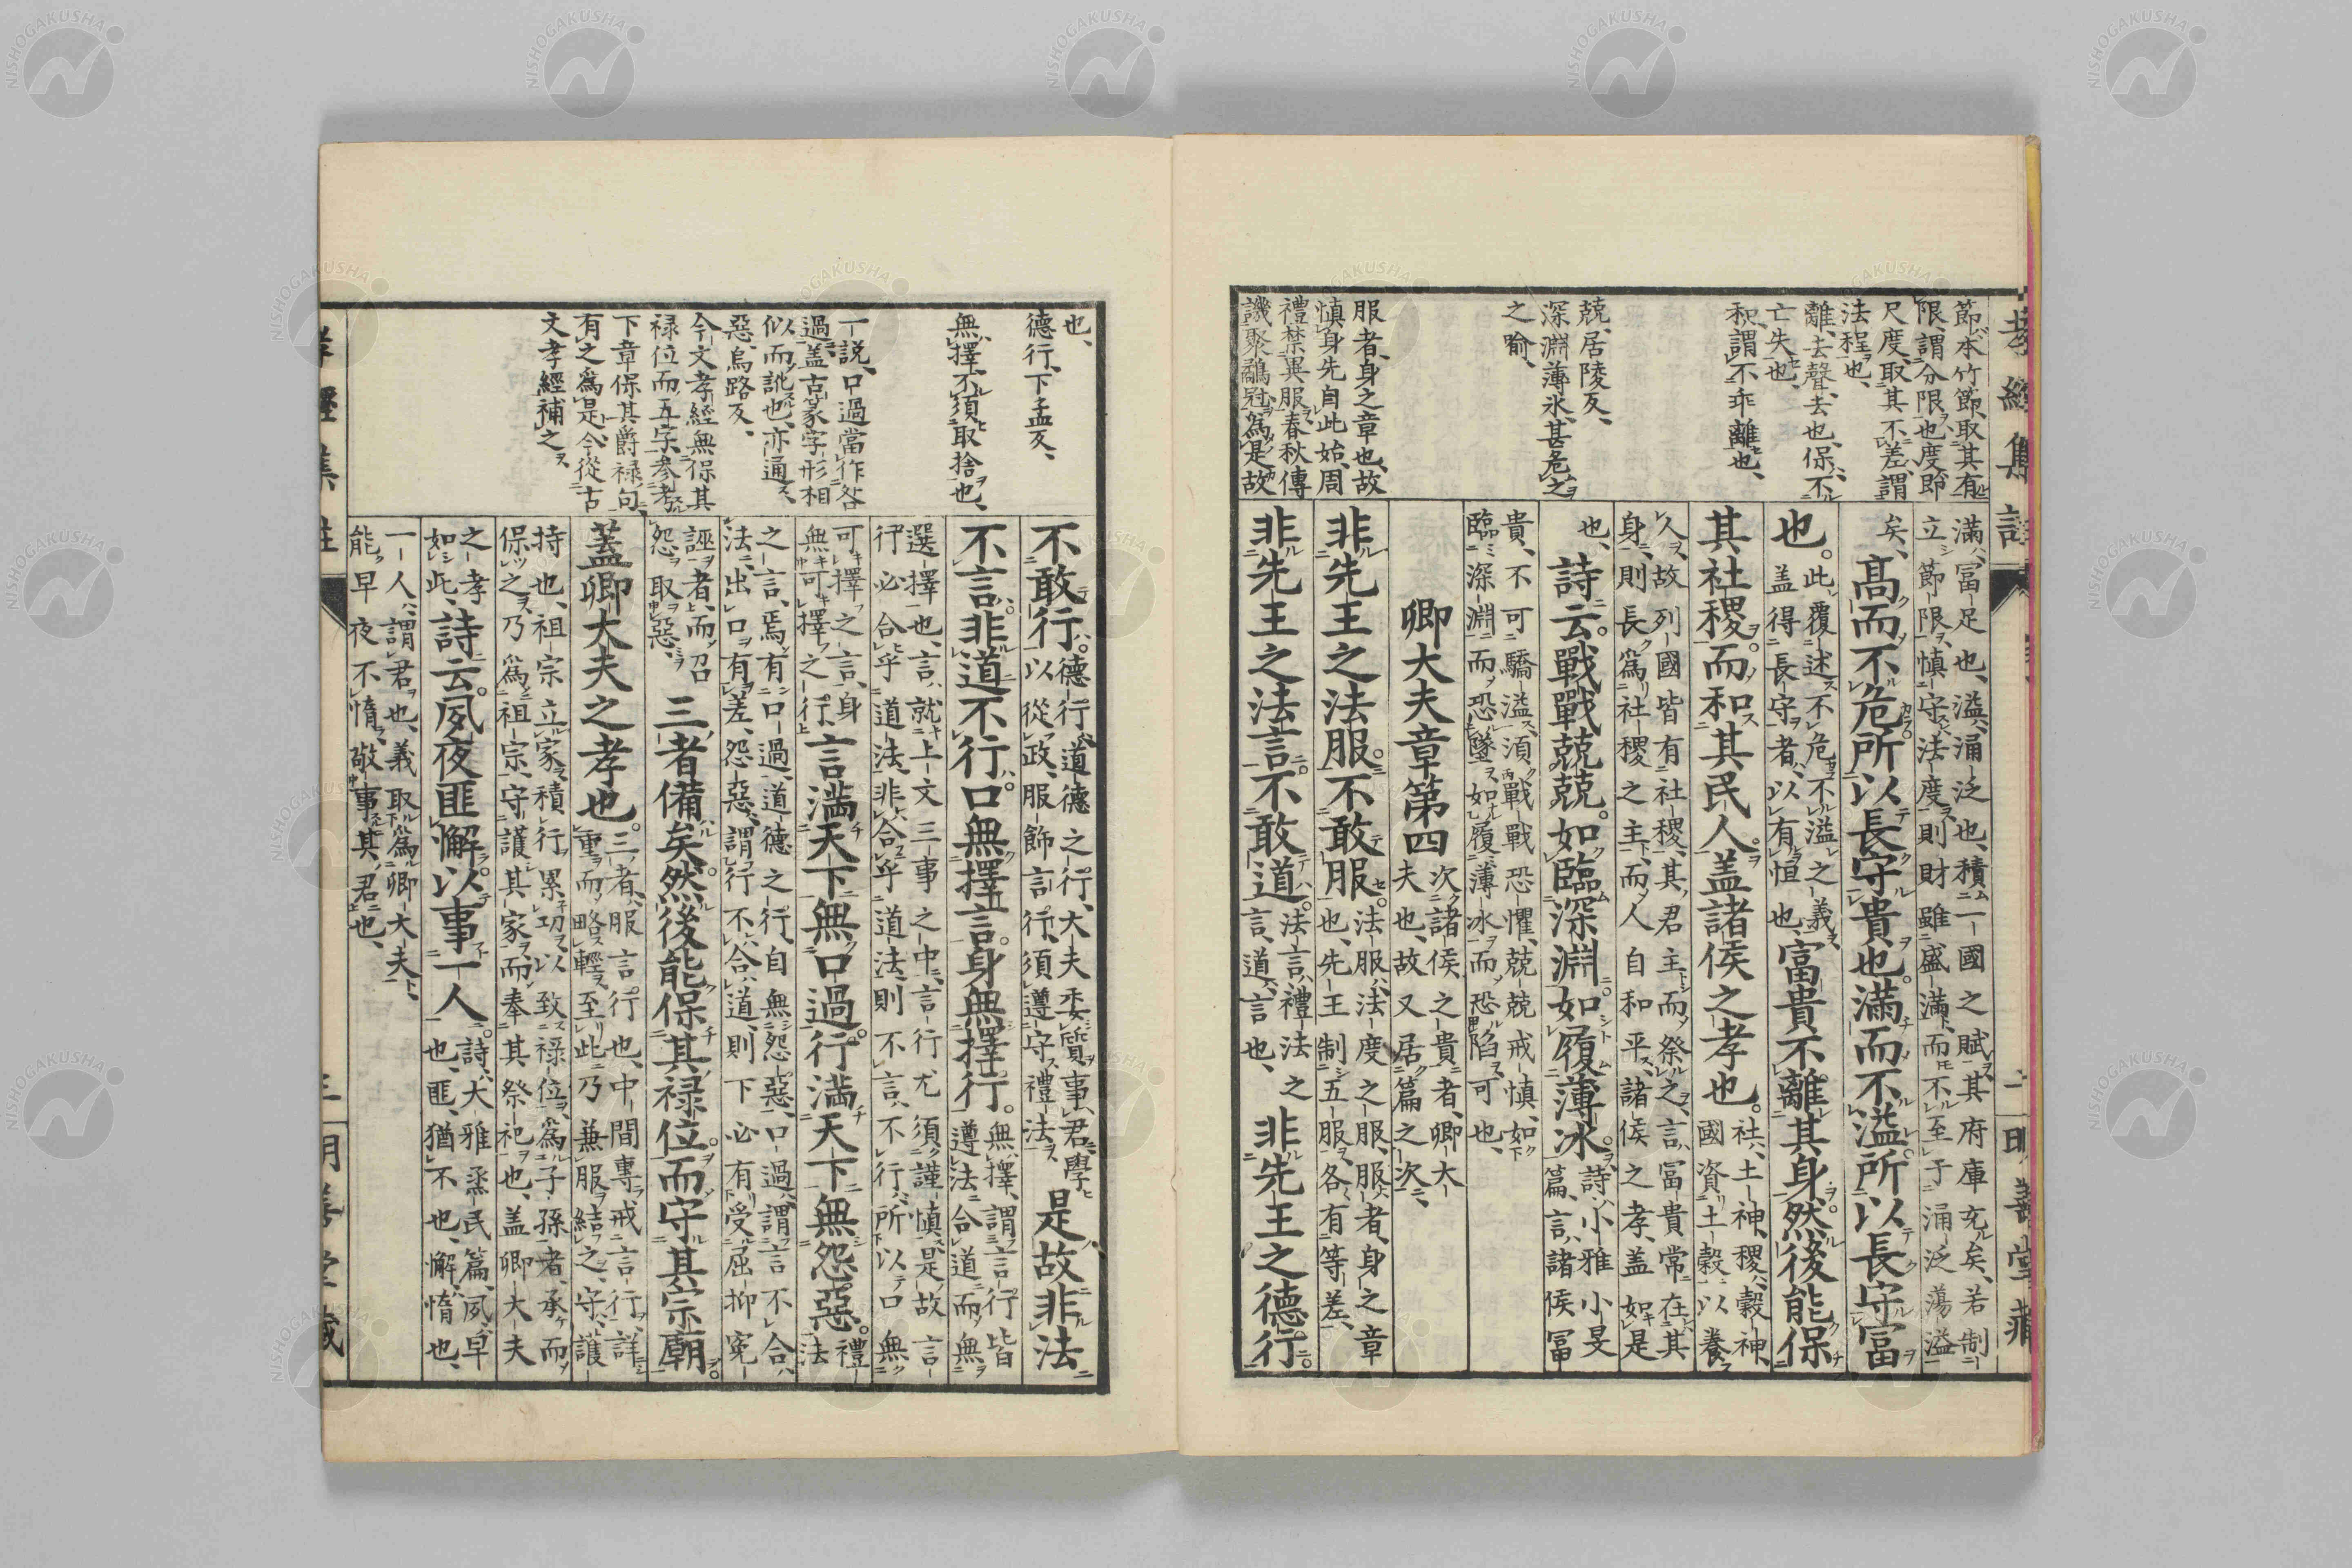 節本竹節取其有
限謂分限也度即
尺度取其不差謂
法程也
離去聲去也保不
亡失也
和謂不乖離也
兢居陵反
深淵薄氷甚危之
之喻
服者身之章也故
慎身先自此始周
禮禁異服春秋傳
譏聚鷸冠為是故
滿冨足也溢涌泛也積一國之賦其府庫充矣若制
立節限慎守法度則財雖盛滿而不至于涌泛蕩溢
矣高而不危所以長守貴也滿而不溢所以長守冨
也此覆述不危不溢之義
盖得長守者以有恒也富貴不離其身然後能保
其社稷而和其民人盖諸侯之孝也社土神稷穀神
國資土穀以養
人故列國皆有社稷其君主而祭之言冨貴常在其
身則長為社稷之主而人自和平諸侯之孝盖如是
也詩云戰戰兢兢如臨深淵如履薄冰詩小雅小旻
篇言諸侯冨
貴不可驕溢須戰戰恐懼兢兢戒慎如
臨深淵而恐墜如履薄冰而恐陷可也
卿大夫章第四次諸侯之貴者卿大
夫也故又居篇之次
非先王之法服不敢服法服法度之服服者身之章
也先王制五服各有等差
非先王之法言不敢道法言禮法之
言道言也非先王之德行
也
德行下孟反
無擇不須取捨也
一說口過當作咎
過盖古篆字形相
似而訛也亦通
惡烏路反
今文孝經無保其
禄位而五字參考
下章保其爵禄句
有之為是今從古
文孝經補之
不敢行德行道德之行大夫委質事君學
以從政服飾言行須遵守禮法是故非法
不言非道不行口無擇言身無擇行無擇謂言行皆
遵法合道而無
選擇也言就上文三事之中言行尤須謹慎是故言
行必合乎道法非合乎道法則不言不行所以口無
可擇之言身
無可擇之行言滿天下無口過行滿天下無怨惡禮
法
之言焉有口過道德之行自無怨惡口過謂言不合
法出口有差怨惡謂行不合道則下必有受屈抑冤
誣者而召
怨取惡三者備矣然後能保其禄位而守其宗廟
蓋卿大夫之孝也三者服言行也中間專戒言行詳
重而略輕至此乃兼服結之守護
持也祖宗立家積行累功以致禄位為子孫者承而
保之乃為祖宗守護其家而奉其祭祀也盖卿大夫
之孝
如此詩云夙夜匪懈以事一人詩大雅烝民篇夙早
也匪猶不也懈惰也
一人謂君也義取為卿大夫
能早夜不惰敬事其君也